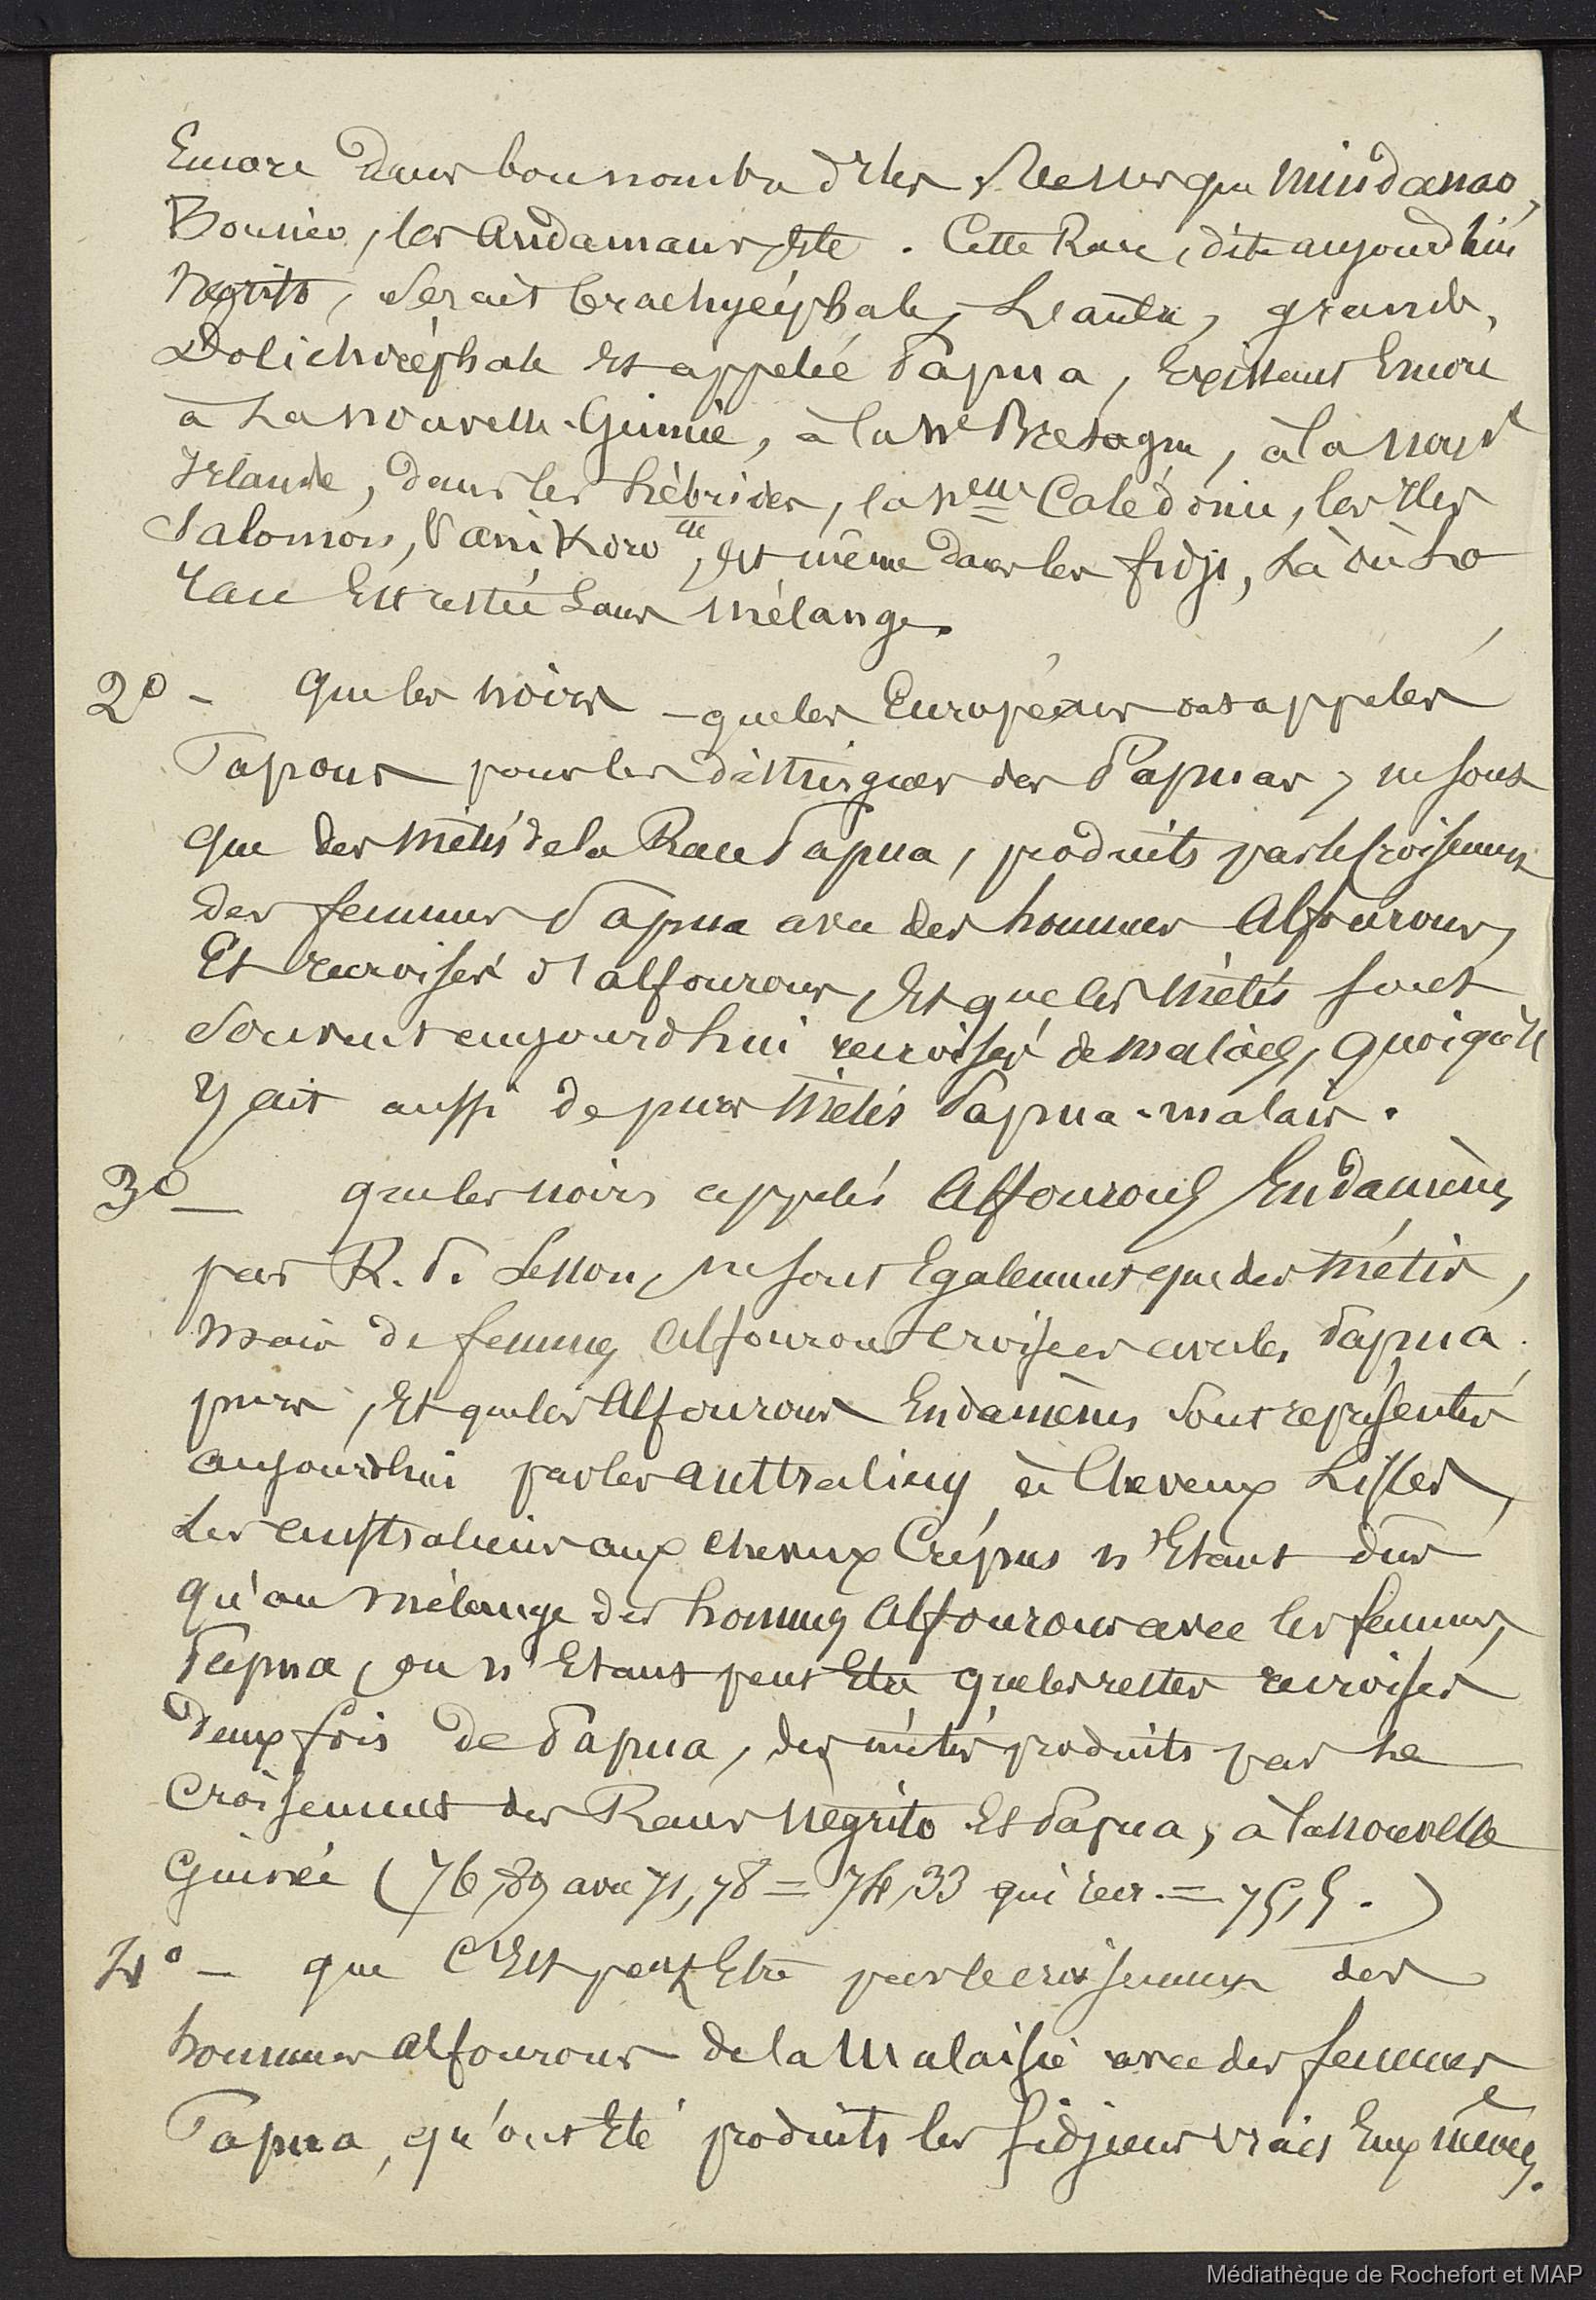 Encore dans bon nombre d'Iles telles que Mindanao,
Bornéo, les Andamans, Etc. Cette Race, dite aujourd'hui
Negrito, serait brachycéphale, L'autre, grande,
Dolichocéphale Et appelée Papua, Existant Encore
à La nouvelle-Guinée, à la Nle Bretagne, à la nouvle
Irlande, dans les hébrides, la Nelle Calédonie, les Iles
Salomon, Vanikoro, Etc, Et même dans les fidji, Là où La
race Est restée Sans mélange.
2° - que les noirs - que les Européens ont appelés
Papous pour les distinguer des Papuas, ne sont
que des métis de la Race Papua, produits par le croisement
des femmes Papua avec des hommes Alfourous,
Et recroisés d'alfourous, Et que les métis sont
souvent aujourd'hui recroisés de malais, quoiqu'il
y ait aussi de purs métis Papua-malais.
3° - que les noirs appelés Alfourous Endamènes
par R. P. Lesson, ne sont Egalement que des métis,
mais de femmes Alfourous croisées avec les Papua
purs, Et que les Alfourous Endamènes sont représentés
aujourdhui par les australiens à Cheveux Lisses,
Les australiens aux cheveux Crépus n'Etant dus
qu'au mélange des hommes Alfourous avec les femmes
Papua, ou n'Etant peut Etre que les restes recroisés
deux fois de Papua, des métis produits par Le
Croisement des Races Négrito Et Papua, à la nouvelle
Guinée (76,89 avec 71,78 = 74,33 qui recr. = 75,5.)
4° - que C'Est peut Etre par le croisement des
hommes alfourous de la Malaisie avec des femmes
Papua, qu'ont Eté produits les fidjiens vrais Eux mêmes.
Médiathèque de Rochefort et MAP